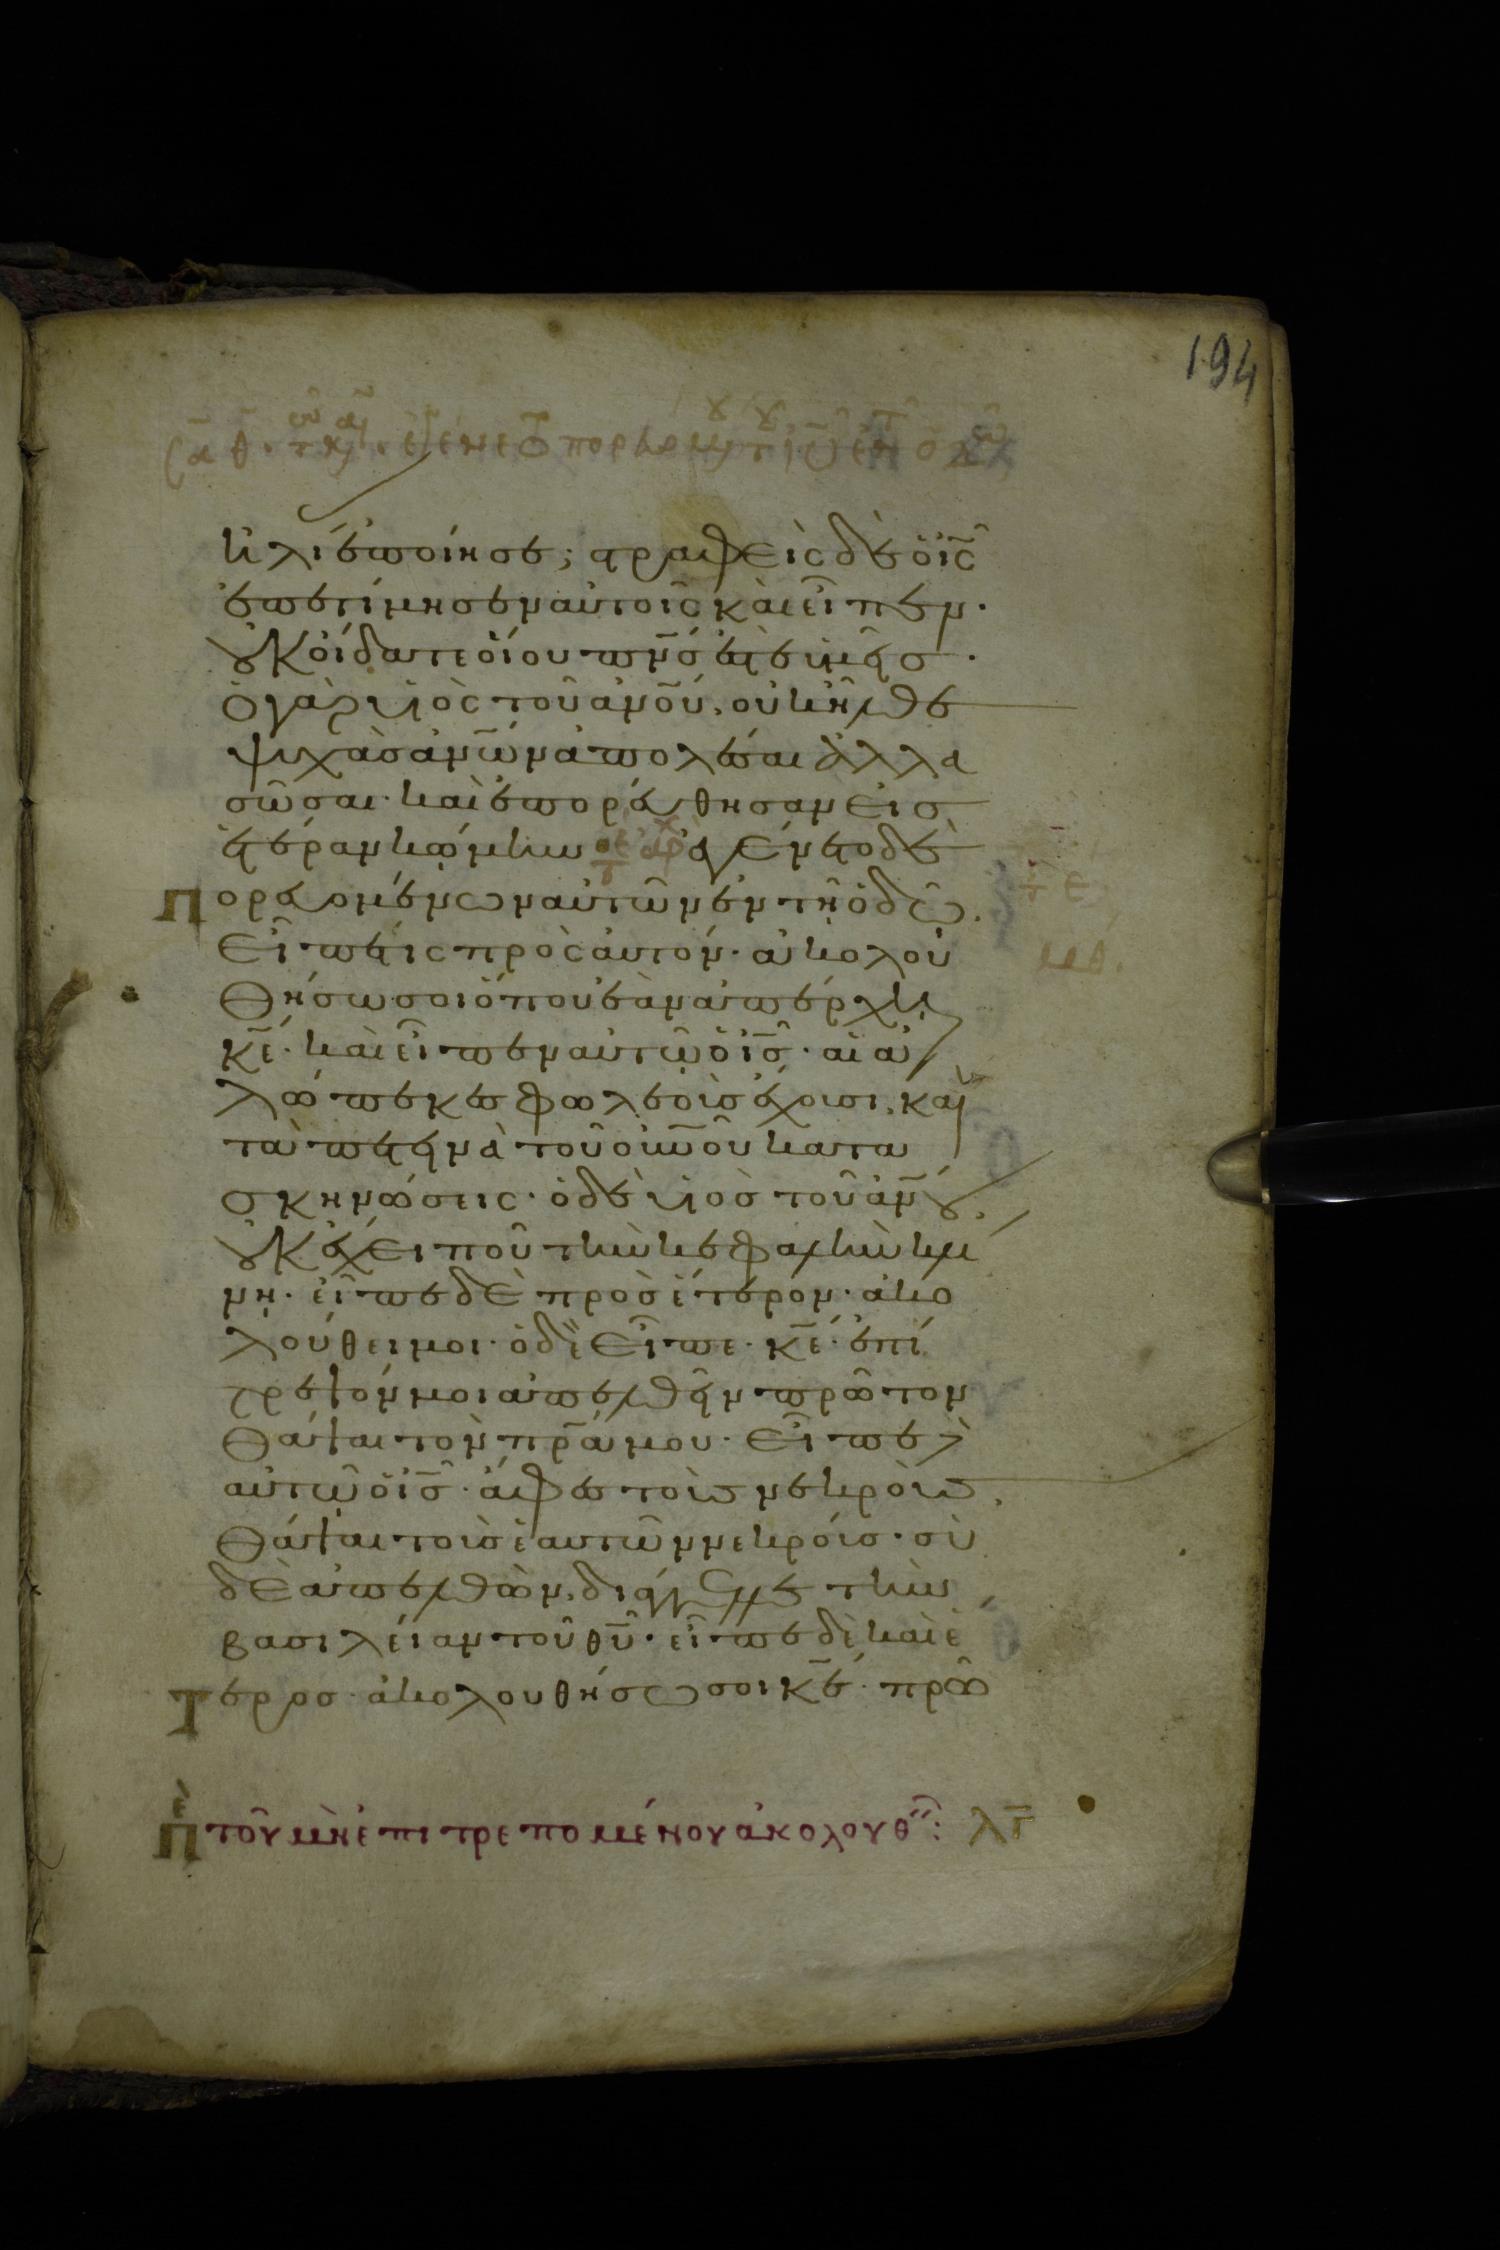 194
ἠλί ἐποίησε; στραφεὶς δὲ ὁ ι̅ς̅
ἐπετίμησεν αὐτοῖς καὶ εἶπεν·
οὐκ οἴδατε οἵου π̅ν̅ς̅ ἐστὲ ὑμεῖς·
ὁ γὰρ υἱὸς τοῦ α̅ν̅ο̅υ̅, οὐκ ἦλθε
ψυχὰς α̅ν̅ω̅ν̅ ἀπολέσαι ἀλλὰ
σῶσαι· καὶ ἐπορεύθησαν εἰς
ἑτέραν κώμην ἐγένετο δὲ
πορευομένων αὐτῶν ἐν τῇ ὁδῷ.
εἶπέ τις πρὸς αὐτόν· ἀκολου
θήσω σοι ὅπου ἐὰν ἀπέρχῃ
κ̅ε̅· καὶ εἶπεν αὐτῷ ὁ ι̅ς̅· αἱ ἀ
λώπεκες φωλεοὺς ἔχουσι, καὶ
τὰ πετεινὰ τοῦ ο̅υ̅ν̅ο̅υ̅ κατα
σκηνώσεις· ὁ δὲ υἱὸς τοῦ α̅ν̅ο̅υ̅
οὐκ ἔχει ποῦ τὴν κεφαλὴν κλί
νῃ· εἶπε δὲ πρὸς ἕτερον· ἀκο
λούθει μοι· ὁ δὲ εἶπε· κ̅ε̅· ἐπί
τρεψόν μοι ἀπελθεῖν πρῶτον
θάψαι τὸν π̅ρ̅α̅ μου· εἶπε δὲ
αὐτῷ ὁ ι̅ς̅· ἄφες τοὺς νεκροὺς
θάψαι τοὺς ἑαυτῶν νεκρούς· σὺ
δὲ ἀπελθὼν, διάγγελλε τὴν
βασιλείαν τοῦ θ̅υ̅· εἶπε δὲ καὶ ἕ
τερος· ἀκολουθήσω σοι κ̅ε̅· πρῶ
Περὶ τοῦ μὴ ἐπιτρεπομένου ἀκολουθεῖν: λγ